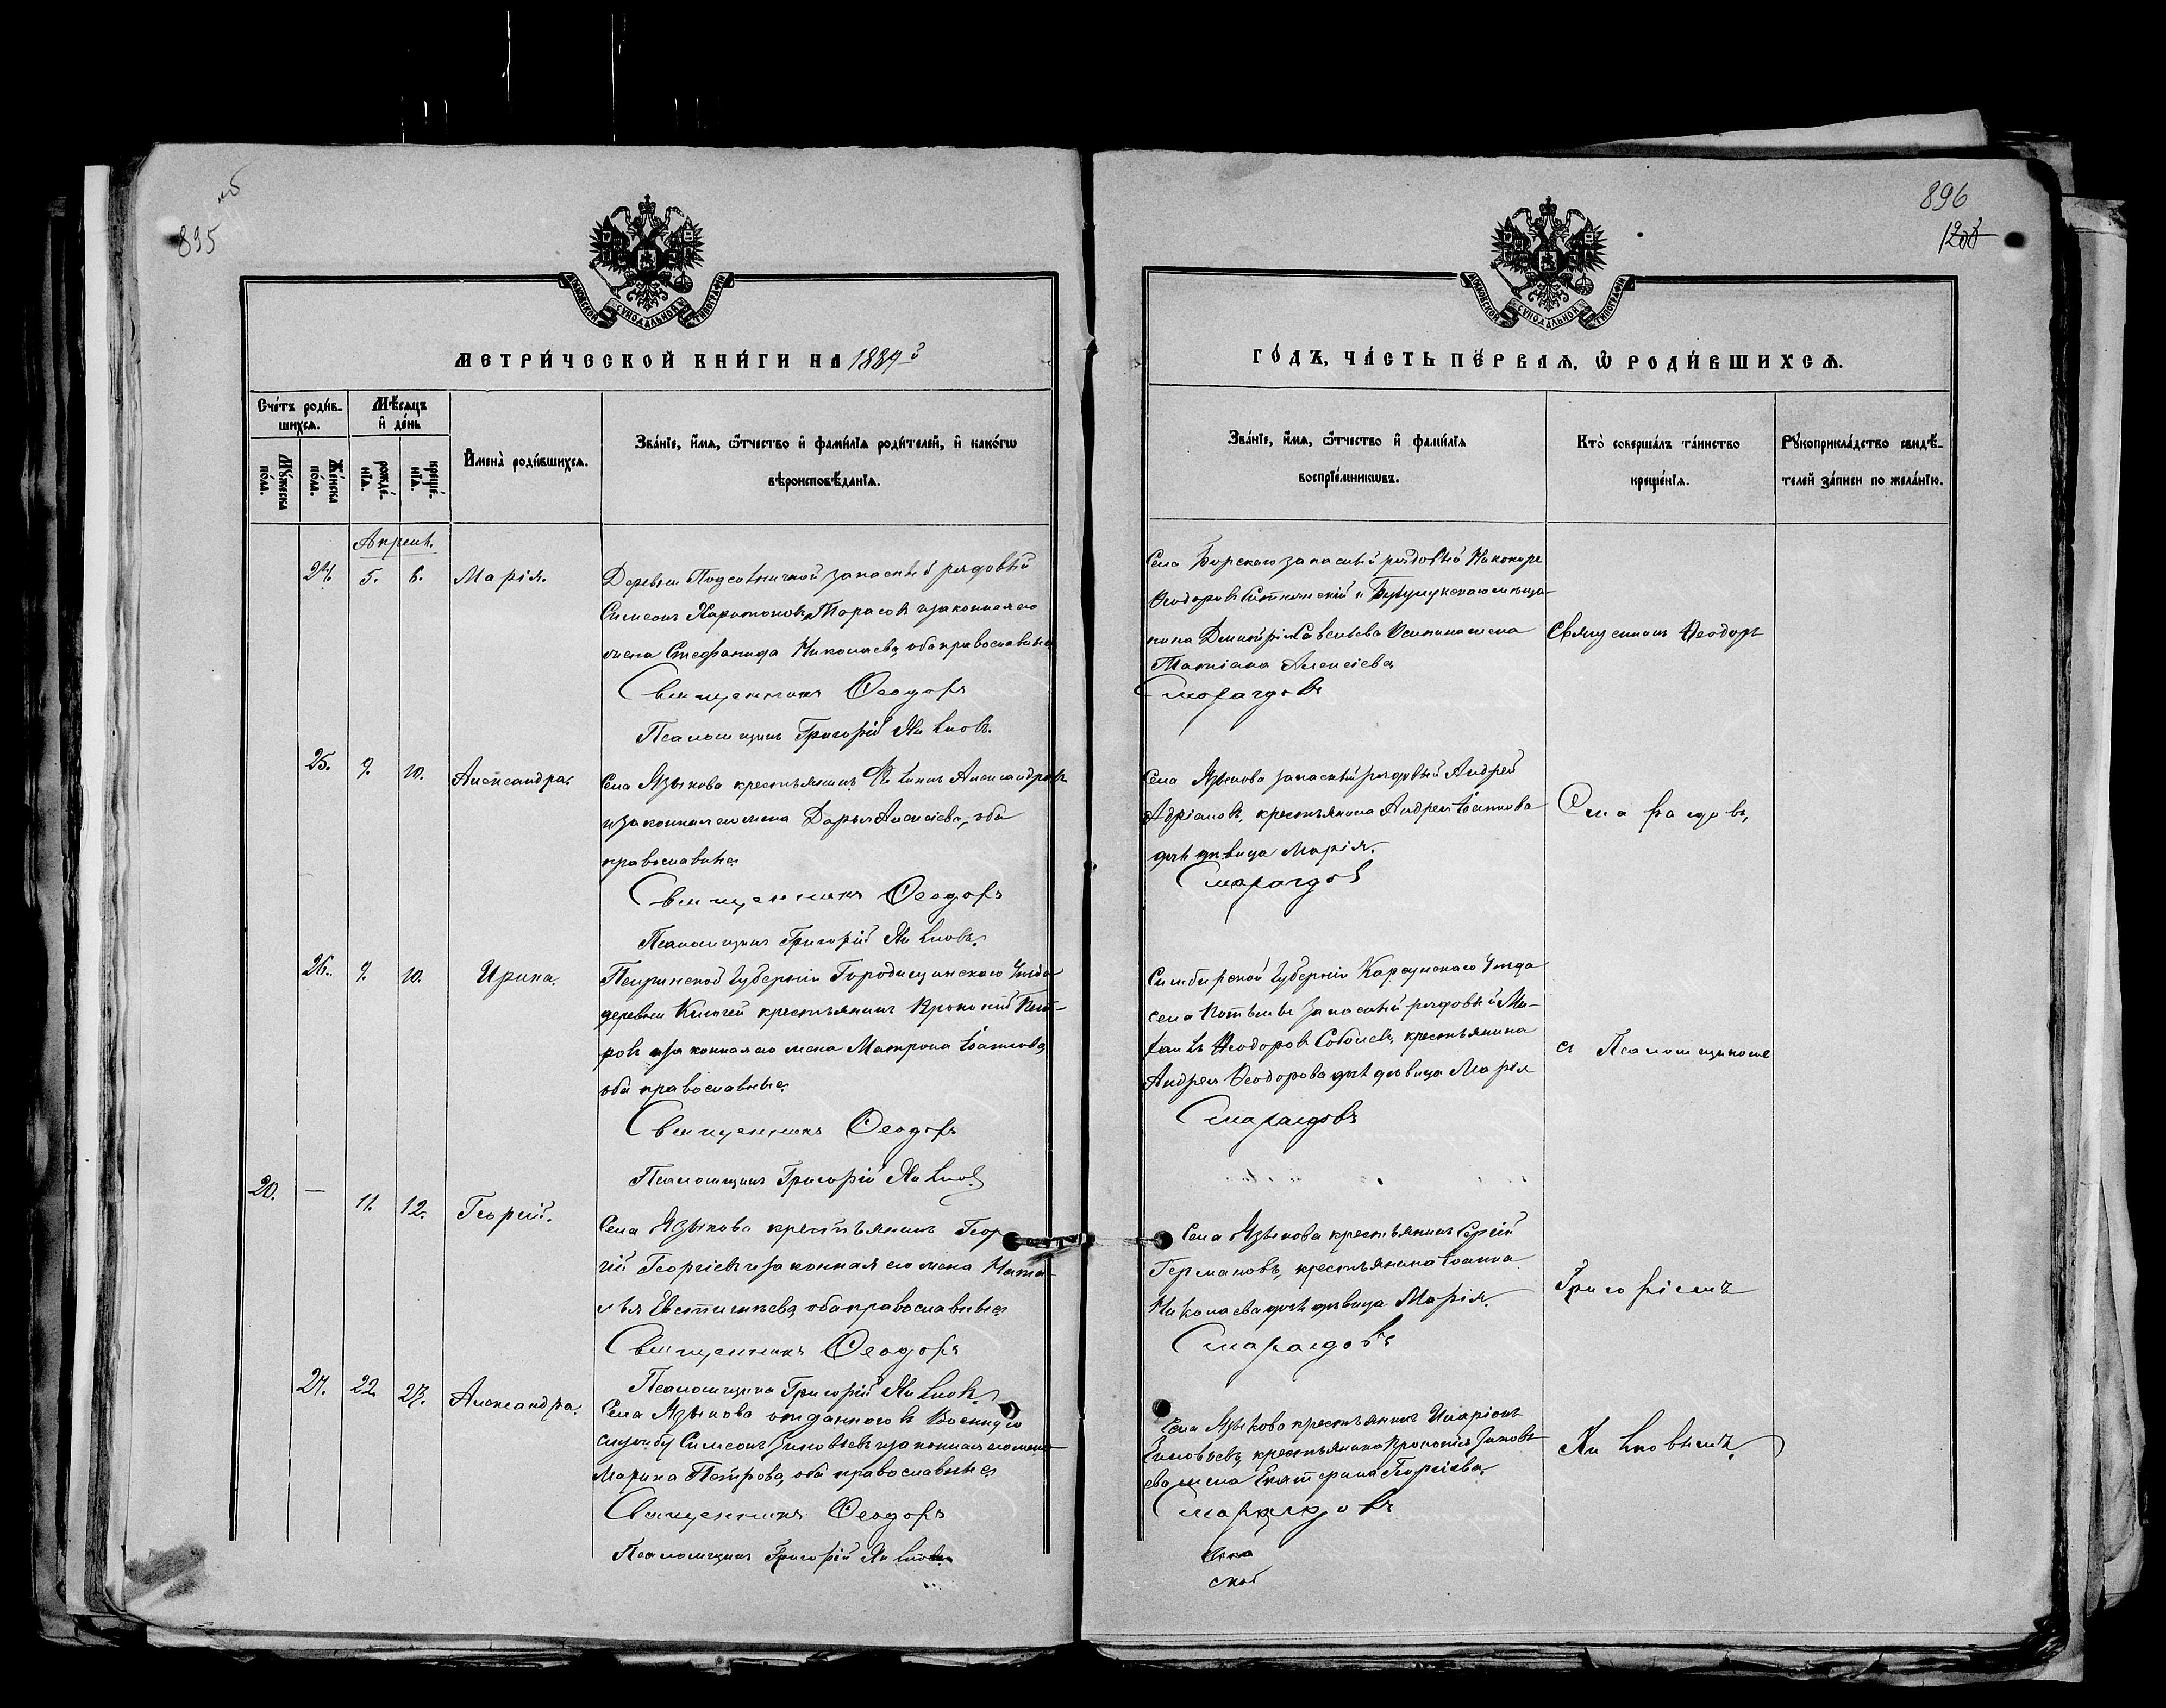 895
896
МОСКОВСКОЙ СѴНОДАЛЬНОЙ ТИПОГРАФІИ
МОСКОВСКОЙ СѴНОДАЛЬНОЙ ТИПОГРАФІИ
МЕТРИ́ЧЕСКОЙ КНИ́ГИ НА 1889й
ГО́ДЪ, ЧА́СТЬ ПЕ́РВАЯ, Ѡ РОДИ́ВШИХСЯ.
Сче́тъ роди́в-
шихся.
Му́жеска по́ла.
Же́нска по́ла.
Мѣ́сяцъ и де́нь
рожде́-
нїя.
креще́-
нїя.
И҆мена̀ роди́вшихся.
Зва́нїе, и҆́мя, ѻ҆́тчество и҆ фами́лїя роди́телей, и҆ како́гѡ
вѣроисповѣ́данїя.
Зва́нїе, и҆́мя, ѻ҆́тчество и҆ фами́лїя
воспрїе́мникѡвъ.
Кто̀ соверша́лъ та́инство
креще́нїя.
Рꙋкоприкла́дство свидѣ́-
телей за́писи по жела́нїю.
Апрель.
24. 5. 6. Марія.
Деревни Подсолнечной запасный рядовый
Симеонъ Харитоновъ Тарасовъ и законная его
жена Стефанида Николаева, оба православные
Священникъ Ѳеодоръ
Псаломщикъ Григорій
Села Борскаго запасный рядовый
Ѳеодоровъ и Бузулукскаго мѣща-
нина Димитрія Савельева жена
Татіана Алексіева
Смарагдовъ
Священникъ Ѳеодоръ
25. 9. 10. Александра.
Села Языкова крестьянинъ Александровъ
и законная его жена Дарья Алексіева, оба
православные
Священникъ Ѳеодоръ
Псаломщикъ Григорій
Села Языкова запасный рядовый Андрей
Адріановъ, крестьянина Андрея Іоаннова
дочь дѣвица Марія.
Смарагдовъ
Смарагдовъ,
26. 9. 10. Ирина.
Пензинской Губерніи Городищенскаго Уѣзда
деревни крестьянинъ Прокопій Пет-
ровъ и законная его жена Матрона Іоаннова,
оба православные
Священникъ Ѳеодоръ
Псаломщикъ Григорій
Симбирской Губерніи Карсунскаго Уѣзда
села запасный рядовый Ми-
хаилъ Ѳеодоровъ Соболевъ, крестьянина
Андрея Ѳеодорова дочь дѣвица Марія
Смарагдовъ
съ Псаломщикомъ
20. — 11. 12. Георгій.
Села Языкова крестьянинъ Геор-
гій Георгіевъ и законная его жена Ната-
лья Евстигнѣева, оба православные
Священникъ Ѳеодоръ
Псаломщикъ Григорій
Села Языкова крестьянинъ Сергій
Германовъ, крестьянина Іоанна
Николаева дочь дѣвица Марія.
Смарагдовъ
Григоріемъ
27. 22. 23. Александра.
Села Языкова отданнаго въ Военную
службу Симеонъ Зиновьевъ и законная его жена
Марина Петрова, оба православные
Священникъ Ѳеодоръ
Псаломщикъ Григорій
Села Языкова крестьянинъ Иларіонъ
Зиновьевъ, крестьянина Прокопія Зиновь-
ева жена Екатерина Георгіева.
Смарагдовъ